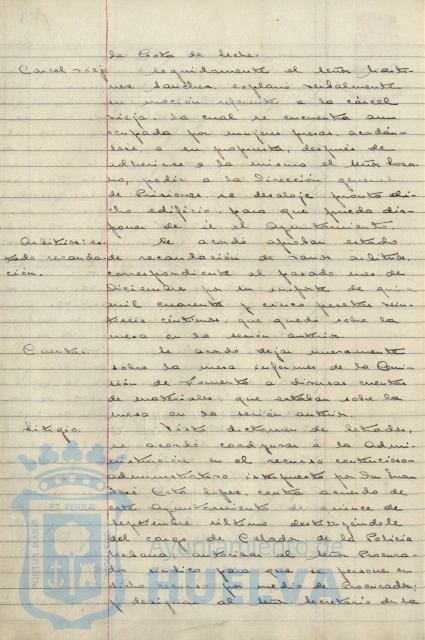 la Gota de leche.
Carcel vieja Seguidamente el señor Martí-
nez Sanchez, explanó verbalmente
su moción referente a la cárcel
vieja, la cual se encuentra aun
ocupada por mujeres presas, acordán-
dose, a su propuesta, despues de
adherirse a la misma el señor
no, pedir a la Dirección general
de Prisiones, se desaloje pronto di-
cho edificio, para que pueda dis-
poner de él el Ayuntamiento.
Arbitrios: es- Se acordó aprobar estado
tado recauda- de recaudación de varios arbitrios,
ción. correspondiente al pasado mes de
Diciembre por su importe de
mil cuarenta y cinco pesetas vein-
tiseis céntimos, que quedó sobre la
mesa en la sesión anterior.
Cuentas. Se acordó dejar nuevamente
sobre la mesa informes de la Comi-
sión de Fomento a diversas cuentas
de materiales, que estaban sobre la
mesa en la sesión anterior.
Litigio. Visto dictamen de letrados,
se acordó coadyuvar a la Admi-
nistración en el recurso contencioso-
administrativo interpuesto por Don Juan
José López, contra acuerdo de
este Ayuntamiento de quince de
septiembre último destituyéndole
del cargo de Celador de la Policía
Urbana; autorizar al señor Procura-
dor síndico para que se persone en
dicho recurso por medio de Procurador,
y designar al señor Secretario de la
PORTUS MARIS ET TERRÆ CUSTODIA
Ayuntamiento de
HUELVA